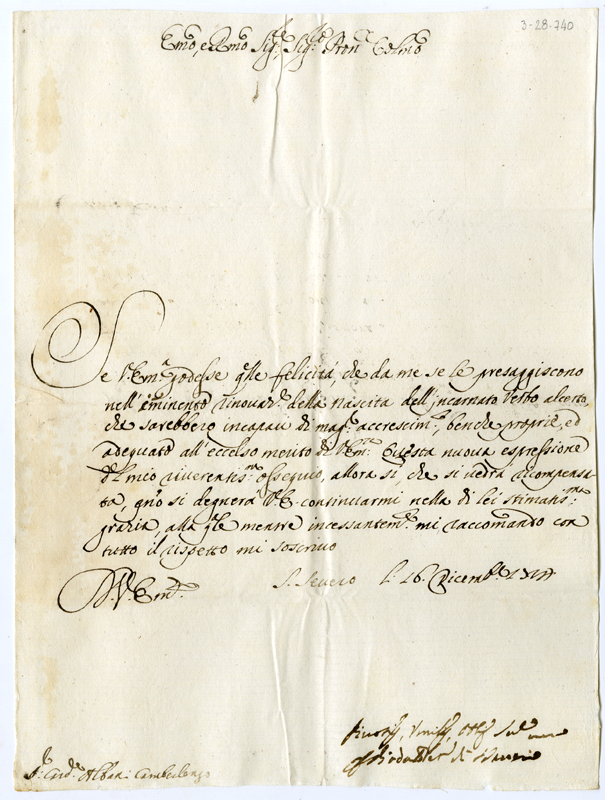 3-28-740
Emo, e Rmo Sig.re, Sig.re Pron. Colmo
Se V. Em.a godesse q.lle felicità, che da me se le presaggiscono
nell'eminente rinovaz.e della nascita dell'incarnato Verbo al certo,
che sarebbero incapaci di mag.r accrescim.to, benche proprie, ed
adequato all'eccelso merito di V. Em.a Questa nuova espressione
del mio riverentis.mo ossequio, allora si, che si vedrà ricompensa-
ta, q.ndo si degnerà V. E. continuarmi nella di lei stimatis.ma
grazia, alla q.le mentre incessantem.te mi raccomando con
tutto il rispetto mi soscrivo
D. V. Em.a
S. Severo li 16. Dicemb.e
S.r Card.e Albani Camerlengo